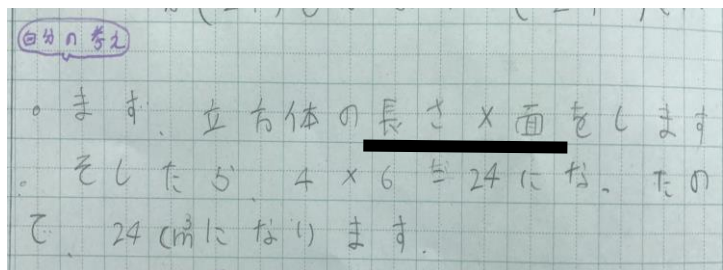 自分の考え
。まず、立方体の長さ×面をします
。そしたら、4×6=24になったの
で、24cm³になります。